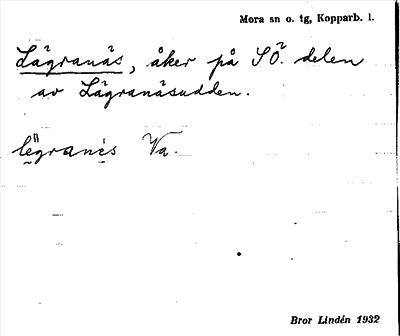 Mora sn o. tg, Kopparb. l.
Lägranäs, åker på SÖ. delen
av Lägranäsudden.
Va.
Bror Lindén 1932